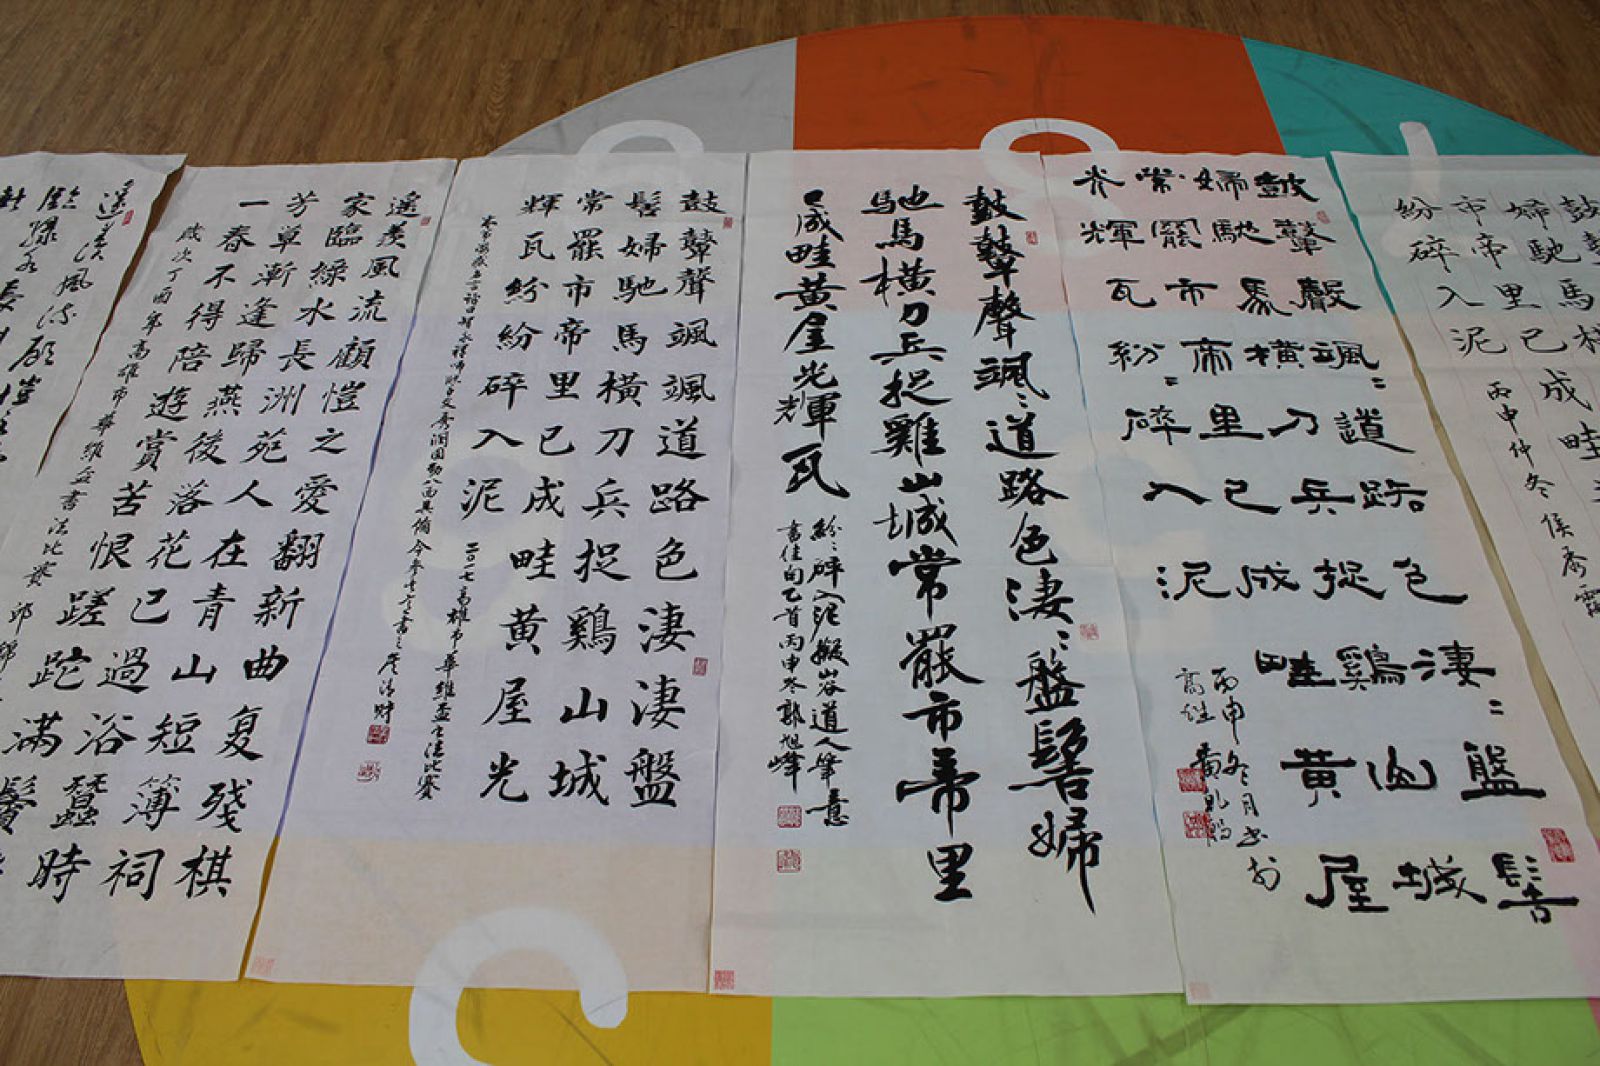 鼓鼙
婦馳馬横
市帝里已成畦
紛碎入泥
丙申仲冬侯
鼓鼙聲颯〻道路色淒〻盤髻
婦馳馬橫刀兵捉鷄山城
常罷市帝里已成畦黃屋
光輝瓦紛〻碎入泥
丙申冬月書於
高雄黃
鼓鼙聲颯〻道路色淒〻盤髻婦
馳馬橫刀兵捉雞山城常罷市帝里
已成畦黃屋光輝瓦
紛〻碎入泥擬山谷道人筆意
書佳句乙首丙申冬郭旭峰
鼓鼙聲颯颯道路色淒淒盤
髻婦馳馬橫刀兵捉鷄山城
常罷市帝里已成畦黃屋光
輝瓦紛紛碎入泥
二〇一七高雄市華維盃書法比賽
遙羨風流顧愷之愛翻新曲复殘棋
家臨綠水長洲苑人在青山短簿祠
芳草漸逢歸燕後落花已過浴蠶時
一春不得陪遊賞苦恨蹉跎滿鬢
歲次丁酉年高雄市華維盃書法比賽 邱錦
遙羨風流顧愷
臨綠水